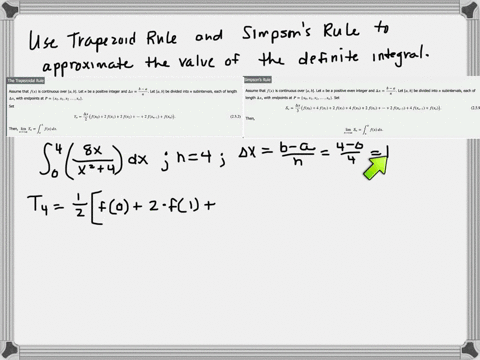 Use Trapezoid Rule and Simpson's Rule to
approximate the value of the definite integral.
The Trapezoidal Rule
Assume that f(x) is continuous over [a, b]. Let n be a positive integer and Δx = (b − a)/n. Let [a, b] be divided into n subintervals, each of length
Δx, with endpoints at P = {x₀, x₁, x₂ … , xₙ}.
Set
Tₙ = Δx/2 (f(x₀) + 2 f(x₁) + 2 f(x₂) + ⋯ + 2 f(xₙ₋₁) + f(xₙ)). (2.5.2)
Then,
Simpson's Rule
Assume that f(x) is continuous over [a, b]. Let n be a positive even integer and Δx = (b − a)/n. Let [a, b] be divided into n subintervals, each of length
Δx, with endpoints at P = {x₀, x₁, x₂, … , xₙ}.
Set
∫₀⁴ (8x/(x²+4)) dx ; n=4 ; Δx = (b−a)/n = (4−0)/4 = 1
T₄ = 1/2 [f(0) + 2·f(1) +